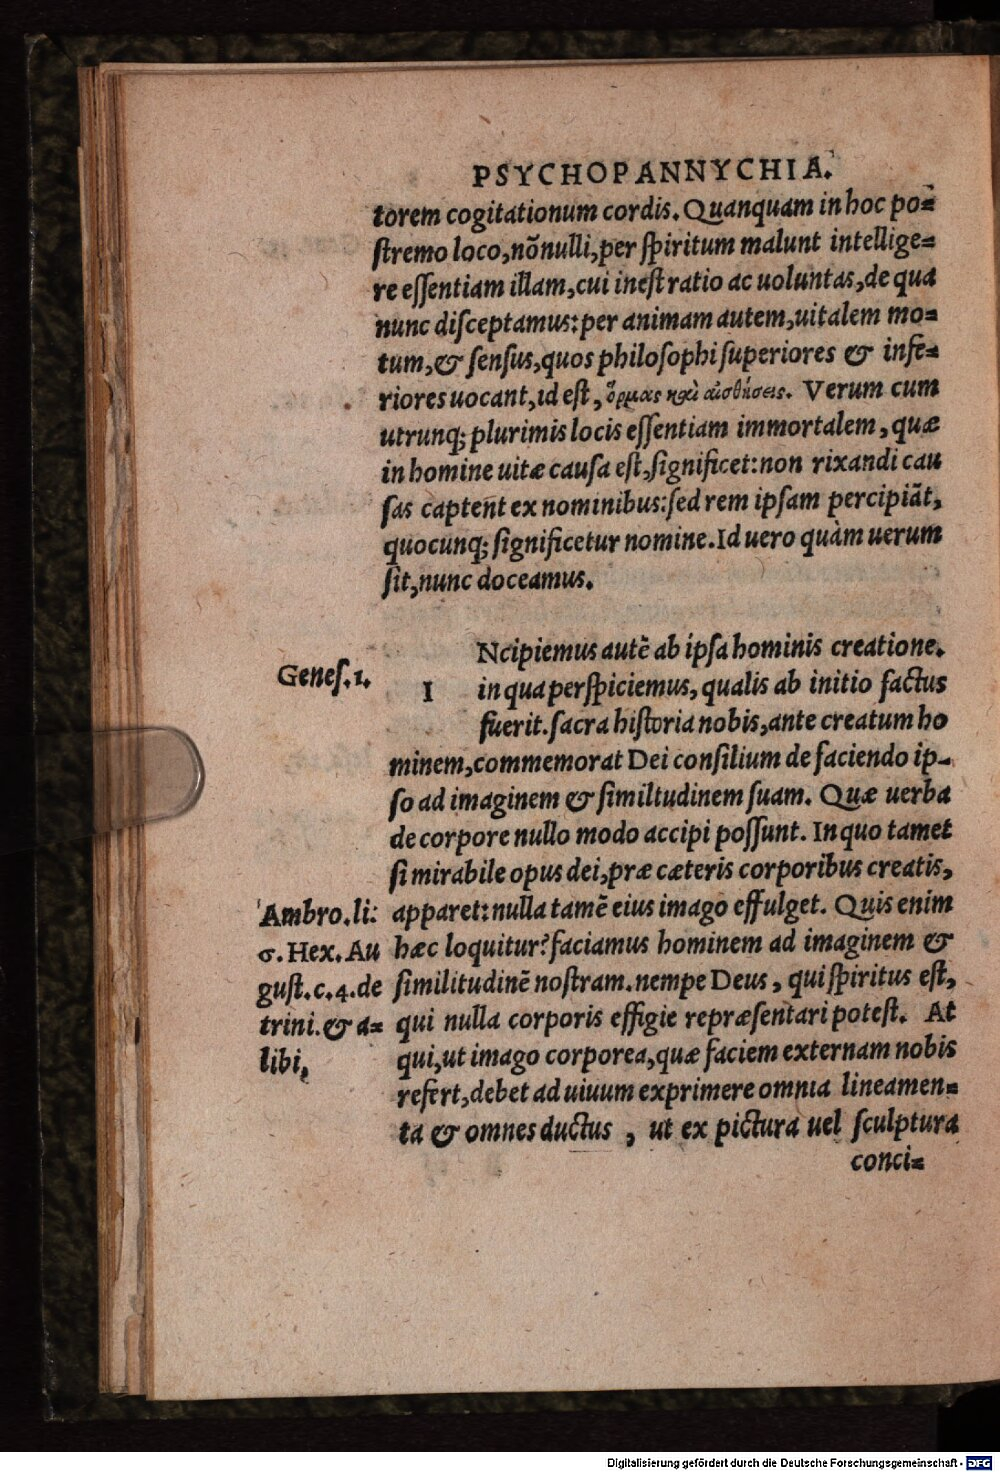 PSYCHOPANNYCHIA.
torem cogitationum cordis. Quanquam in hoc po=
stremo loco, nõnulli, per spiritum malunt intellige=
re essentiam illam, cui inest ratio ac uoluntas, de qua
nunc disceptamus: per animam autem, uitalem mo=
tum, & sensus, quos philosophi superiores & infe=
riores uocant, id est, ὅρμας καὶ αἰσθήσεις. Verum cum
utrunq; plurimis locis essentiam immortalem, quæ
in homine uitæ causa est, significet: non rixandi cau
sas captent ex nominibus: sed rem ipsam percipiãt,
quocunq; significetur nomine. Id uero quàm uerum
sit, nunc doceamus.
Genes. 1.
INcipiemus autẽ ab ipsa hominis creatione.
in qua perspiciemus, qualis ab initio factus
fuerit. sacra historia nobis, ante creatum ho
minem, commemorat Dei consilium de faciendo ip-
so ad imaginem & similtudinem suam. Quæ uerba
de corpore nullo modo accipi possunt. In quo tamet
si mirabile opus dei, præ cæteris corporibus creatis,
apparet: nulla tamẽ eius imago effulget. Quis enim
hæc loquitur? faciamus hominem ad imaginem &
similitudinẽ nostram. nempe Deus, qui spiritus est,
qui nulla corporis effigie repræsentari potest. At
qui, ut imago corporea, quæ faciem externam nobis
refert, debet ad uiuum exprimere omnia lineamen=
ta & omnes ductus, ut ex pictura uel sculptura
conci=
Ambro. li:
6. Hex. Au
gust. c. 4. de
trini. & a=
libi,
Digitalisierung gefördert durch die Deutsche Forschungsgemeinschaft - DFG